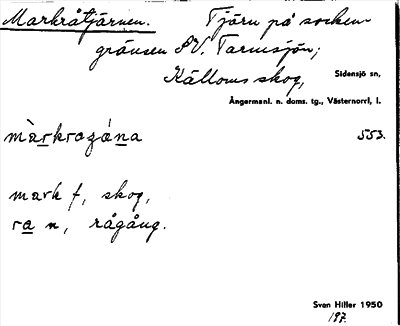 Markråtjärnen. Tjärn på socken-
gränsen SV. Tarmsjön;
Källoms skog,
Sidensjö sn,
Ångermanl. n. doms. tg., Västernorrl, l.
màrkrogána 553.
mark f, skog,
ra n, rågång.
Sven Hiller 1950
197.